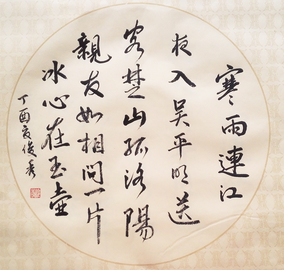 寒雨連江
夜入吴平明送
客楚山孤洛陽
親友如相問一片
冰心在玉壺
丁酉夏俊秀